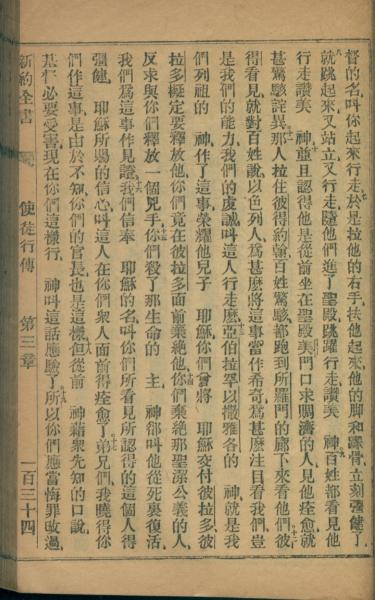 督的名、叫你起來行走、於是拉他的右手、扶他起來、他的脚和踝骨、立刻强健了、
就跳起來、又站立、又行走、隨他們進了聖殿、跳躍行走、讚美 神、百姓都看見他
行走讚美 神、並且認得他是從前坐在聖殿美門口求賙濟的人、見他痊愈、就
甚驚駭詫異、那人拉住彼得約翰、百姓驚駭、都跑到所羅門的廊下、來看他們、彼
得看見、就對百姓說、以色列人、爲甚麽將這事當作希奇、爲甚麽注目看我們、豈
是我們的能力、我們的虔誠、叫這人行走麽、亞伯拉罕以撒雅各的 神、就是我
們列祖的 神、作了這事、榮耀他兒子 耶穌、你們曾將 耶穌交付彼拉多、彼
拉多擬定要釋放他、你們竟在彼拉多面前棄絕他、你們棄絕那聖潔公義的人、
反求與你們釋放一個兇手、你們殺了那生命的 主、 神卻叫他從死裏復活、
我們爲這事作見證、我們信奉 耶穌的名、叫你們所看見所認得的這個人得
强健、 耶穌所賜的信心、叫這人在你們衆人面前得痊愈了、弟兄們、我曉得你
們作這事、是由於不知、你們的官長、也是這樣、但從前 神藉衆先知的口、說、
基督必要受害、現在你們這樣行、 神叫這話應驗了、所以你們應當悔罪改過、
新約全書 使徒行傳 第三章 一百三十四